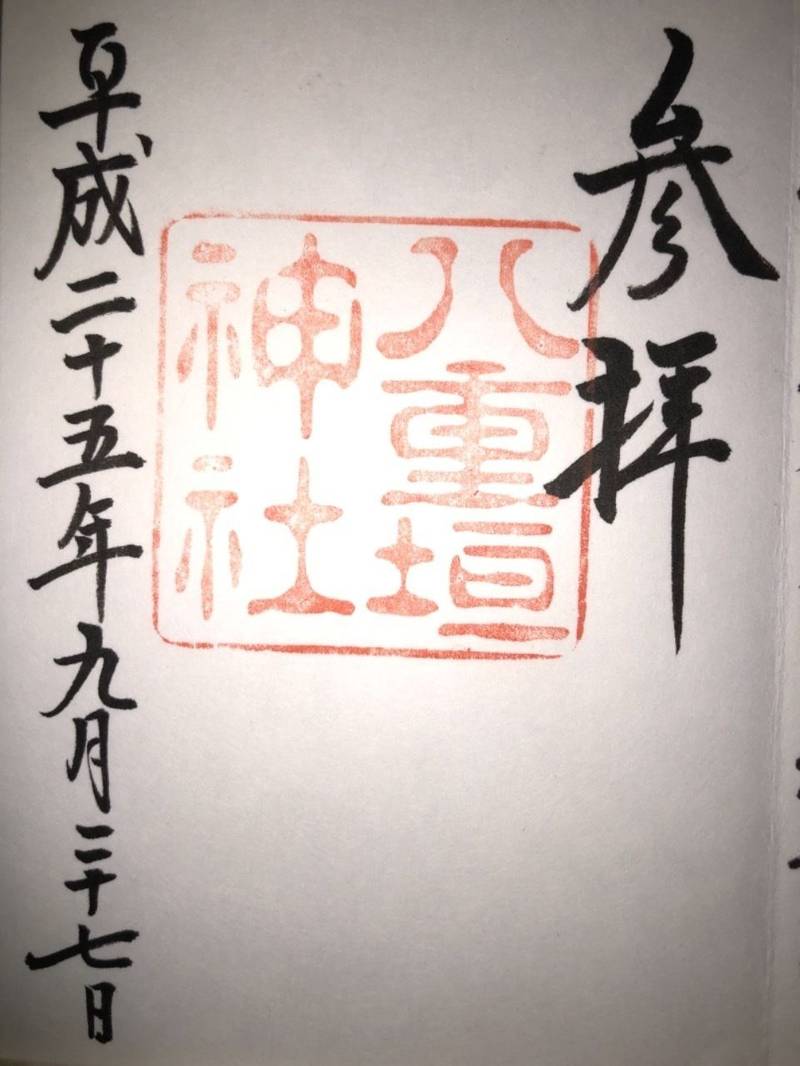 参拝
八重垣
神社
平成二十五年九月二十七日